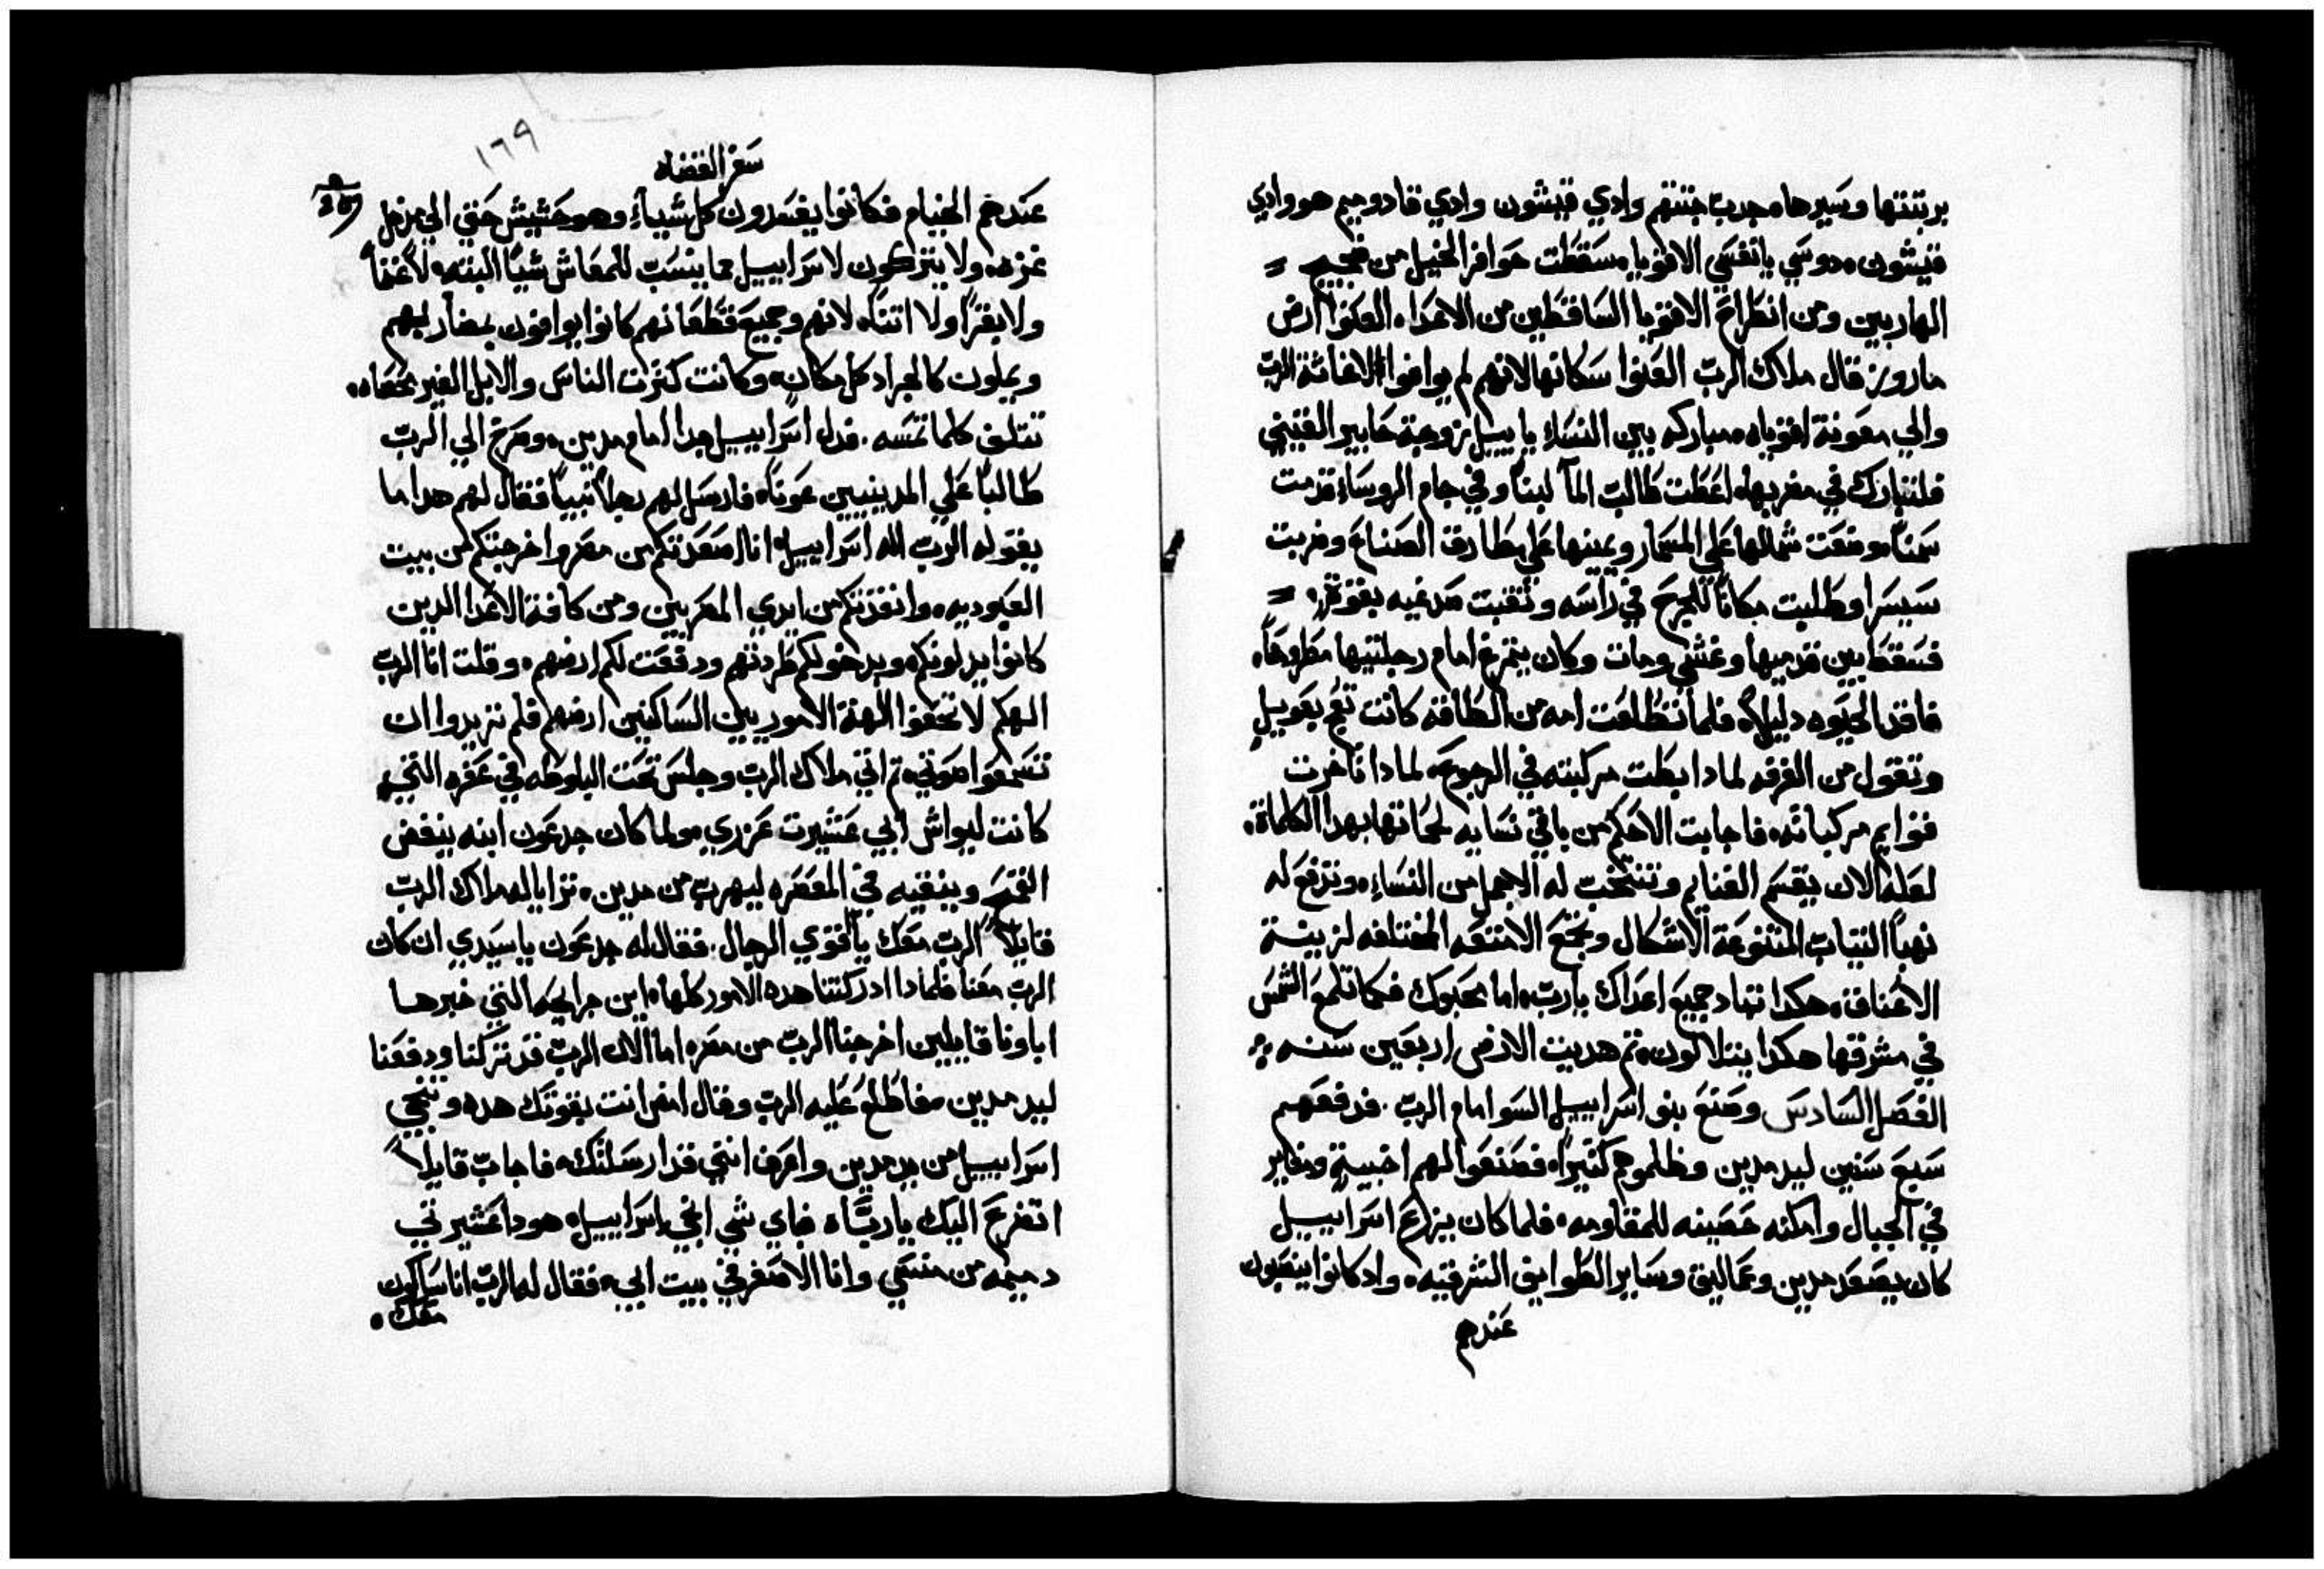 برتبتها وسيرها. جرب جتتهم وادي قيشون وادي قادوميم هو وادي
قيشون. دوسي يا نفسي الاقويا. سقطت حوافر الخيل من ضجيج
الهاربين ومن انطراح الاقويا الساقطين من الاعداء. العنوا ارض
ماروز قال ملاك الرب العنوا سكانها لانهم لم يوافوا الي اغاثة الرب
والي معونة اقوياه. مباركه بين النساء ياييل زوجة حابير القيني
فلتبارك في مضربها. اعطت طالب المآ لبنًا وفي جام الروساء قدمت
سمنًا. وضعت شمالها علي المسمار ويمينها علي مطارق الصناع وضربت
سيسرا وطلبت مكانًا للجرح في راسه وثقبت صدغيه بقوة.
فسقط بين قدميها وغشي ومات وكان يتمرغ امام رجليتيها مطروحًا.
فاقد الحيوه دليلاً. فلما تطلعت امه من الطاقه كانت تعج بعويل
وتقول من الغرفه لمادا ابطت مركبته في الرجوع. لمادا تاخرت
قوايم مركباته. فاجابت الاحكم من باقي نسايه لحماتها بهدا الكلماة.
لعله الان يقسم الغنايم وتنتخب له الاجمل من النساء. وتدفع له
نهبًا التياب المتنوعة الاشكال وتجمع الامتعه المختلفه لزينة
الاعناق. هكدا تباد جميع اعداك يارب. اما محبوك فكما تلمع الشمس
في مشرقها هكدا يتلالون. تم هديت الارض اربعين سنه
الفصل السادس وصنع بنو اسراييل السو امام الرب. فدفعهم
سبع سنين ليد مدين وظلموهم كثيرًا. فصنعوا لهم اخبية ومغاير
في الجبال وامكنه حصينه للمقاومه. فلما كان يزرع اسراييل
كان يصعد مدين وعماليق وساير الطوايف الشرقيه. واد كانوا ينصبون
عندهم
١٦٩
سفر القضاه
عندهم الخيام فكانوا يفسدون كل شياء وهو حشيش حتي الي مدخل
غزه. ولا يتركون لاسراييل مما ينسب للمعاش شيًا البته. لا غنمًا
ولا بقرًا ولا اتناه. لانهم وجميع قطعانهم كانوا يوافون بمضاربهم
ويملون كالجراد كل مكان. وكانت كثرت الناس والابل الغير محصاه.
تتلف كلما تمسه. فدل اسراييل جدا امام مدين. وصرخ الي الرب
طالبًا علي المدينيين عونًا. فارسل لهم رجلاً نبيًا فقال لهم هدا ما
يقوله الرب اله اسراييل. انا اصعدتكم من مصر واخرجتكم من بيت
العبوديه. وانقدتكم من ايدي المصريين ومن كافة الاعدا الدين
كانوا يدلونكم. وبدخولكم طردتهم ودفعت لكم ارضهم. وقلت انا الرب
الهكم لا تخفوا الهة الاموريين الساكنين ارضهم فلم تريدوا ان
تسمعوا صوتي. تم اتي ملاك الرب وجلس تحت البلوطه في عفره التي
كانت ليواش ابي عشيرت عزري. ولما كان جدعون ابنه ينفض
القمح وينقيه في المعصره ليهرب من مدين. ترايا له ملاك الرب
قايلاً الرب معك يا اقوي الرجال. فقال له جدعون ياسيدي ان كان
الرب معنا فلمادا ادركتنا هده الامور كلها. اين جرايحه التي خبرها
اباونا قايلين اخرجنا الرب من مصر. اما الان الرب قد تركنا ودفعنا
ليد مدين. فاطلع عليه الرب وقال امض انت بقوتك هده وتنجي
اسراييل من يد مدين واعرف انني قد ارسلتك. فاجاب قايلاً
اتضرع اليك يا رباه. فباي شي انجي اسراييل. هودا عشيرتي
دميمه من منسي وانا الاصغر في بيت ابي. فقال له الرب انا ساكون
معك.